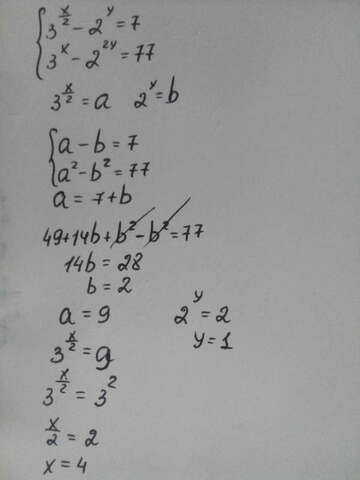 3^(x/2) - 2^y = 7
3^x - 2^(2y) = 77
3^(x/2) = a 2^y = b
a - b = 7
a² - b² = 77
a = 7 + b
49 + 14b + b² - b² = 77
14b = 28
b = 2
a = 9 2^y = 2
3^(x/2) = 9 y = 1
3^(x/2) = 3²
x/2 = 2
x = 4